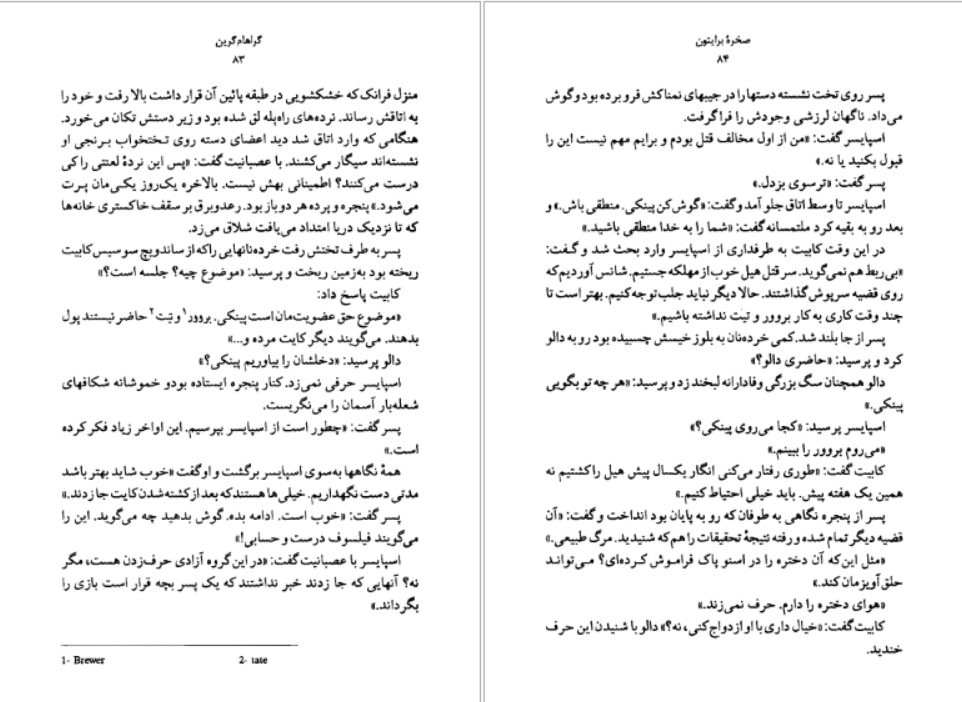 گراهام‌گرین
۸۳
منزل فرانک که خشکشویی در طبقه پائین آن قرار داشت بالا رفت و خود را
به اتاقش رساند. نرده‌های راه‌پله لق شده بود و زیر دستش تکان می‌خورد.
هنگامی که وارد اتاق شد دید اعضای دسته روی تختخواب برنجی او
نشسته‌اند سیگار می‌کشند. با عصبانیت گفت: «پس این نردهٔ لعنتی را کی
درست می‌کنند؟ اطمینانی بهش نیست. بالاخره یک‌روز یکی‌مان پرت
می‌شود.» پنجره و پرده هر دو باز بود. رعدوبرق بر سقف خاکستری خانه‌ها
که تا نزدیک دریا امتداد می‌یافت شلاق می‌زد.
پسر به طرف تختش رفت خرده‌نانهایی راکه از ساندویچ سوسیس کابیت
ریخته بود به‌زمین ریخت و پرسید: «موضوع چیه؟ جلسه است؟»
کابیت پاسخ داد:
«موضوع حق عضویت‌مان است پینکی. بروور۱ و تِت۲ حاضر نیستند پول
بدهند. می‌گویند دیگر کایت مرده و...»
دالو پرسید: «دخلشان را بیاوریم پینکی؟»
اسپایسر حرفی نمی‌زد. کنار پنجره ایستاده بودو خموشانه شکافهای
شعله‌بار آسمان را می‌نگریست.
پسر گفت: «چطور است از اسپایسر بپرسیم. این اواخر زیاد فکر کرده
است.»
همهٔ نگاهها به‌سوی اسپایسر برگشت و اوگفت «خوب شاید بهتر باشد
مدتی دست نگهداریم. خیلی‌ها هستندکه بعد ازکشته‌شدن کایت جا زدند.»
پسر گفت: «خوب است. ادامه بده. گوش بدهید چه می‌گوید. این را
می‌گویند فیلسوف درست و حسابی!»
اسپایسر با عصبانیت گفت: «در این‌گروه آزادی حرف‌زدن هست، مگر
نه؟ آنهایی که جا زدند خبر نداشتند که یک پسر بچه قرار است بازی را
بگرداند.»
1- Brewer 2- tate
صخرهٔ برایتون
۸۴
پسر روی تخت نشسته دستها را در جیبهای نمناکش فرو برده بود وگوش
می‌داد. ناگهان لرزشی وجودش را فراگرفت.
اسپایسر گفت: «من از اول مخالف قتل بودم و برایم مهم نیست این را
قبول بکنید یا نه.»
پسر گفت: «ترسوی بزدل.»
اسپایسر تا وسط اتاق جلو آمد وگفت: «گوش کن پینکی. منطقی باش.» و
بعد رو به بقیه کرد ملتمسانه گفت: «شما را به خدا منطقی باشید.»
در این وقت کابیت به طرفداری از اسپایسر وارد بحث شد و گفت:
«بی‌ربط هم نمی‌گوید. سر قتل هیل خوب از مهلکه جستیم. شانس آوردیم که
روی قضیه سرپوش گذاشتند. حالا دیگر نباید جلب‌توجه کنیم. بهتر است تا
چند وقت کاری به کار بروور و تیت نداشته باشیم.»
پسر از جا بلند شد. کمی خرده‌نان به بلوز خیسش چسبیده بود رو به دالو
کرد و پرسید: «حاضری دالو؟»
دالو همچنان سگ بزرگی وفادارانه لبخند زد و پرسید: «هر چه تو بگویی
پینکی.»
اسپایسر پرسید: «کجا می‌روی پینکی؟»
«می‌روم بروور را ببینم.»
کابیت گفت: «طوری رفتار می‌کنی انگار یکسال پیش هیل را کشتیم نه
همین یک هفته پیش. باید خیلی احتیاط کنیم.»
پسر از پنجره نگاهی به طوفان که رو به پایان بود انداخت و گفت: «آن
قضیه دیگر تمام شده و رفته نتیجهٔ تحقیقات را هم‌که شنیدید. مرگ طبیعی.»
«مثل این‌که آن دختره را در اسنو پاک فراموش کرده‌ای؟ می‌تواند
حلق‌آویزمان کند.»
«هوای دختره را دارم. حرف نمی‌زند.»
کابیت گفت: «خیال داری با او ازدواج‌کنی، نه؟» دالو با شنیدن این حرف
خندید.